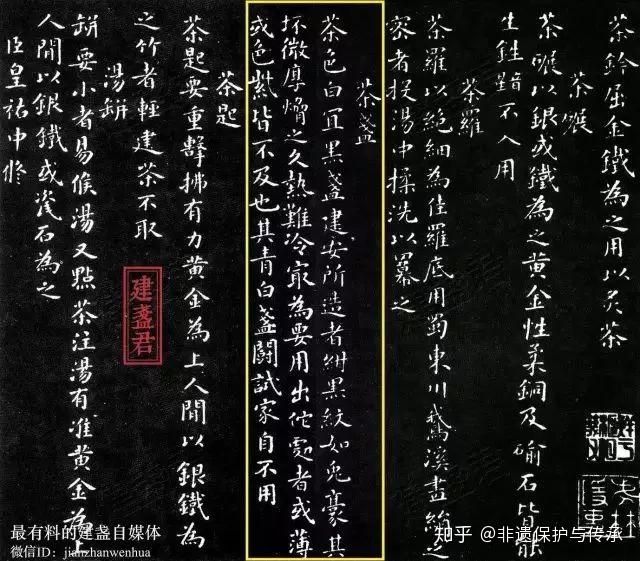 茶鈐屈金鐵為之用以炙茶
茶碾
茶碾以銀或鐵為之黄金性柔銅及鍮石皆能
生鉎不入用
茶羅
茶羅以絶細為佳羅底用蜀東川鵝溪畫絹之
宻者投湯中揉洗以羃之
茶盞
茶色白冝黑盞建安所造者紺黑紋如兔毫其
坯微厚熁之久熱難冷㝡為要用出佗處者或薄
或色紫皆不及也其青白盞鬬試家自不用
茶匙
茶匙要重擊拂有力黄金為上人間以銀鐵為
之竹者輕建茶不取
湯缾
缾要小者易候湯又點茶注湯有准黄金為上
人間以銀鐵或瓷石為之
臣皇祐中修
建盏君
最有料的建盏自媒体
微信ID：jianzhanwenhua
知乎 @非遗保护与传承